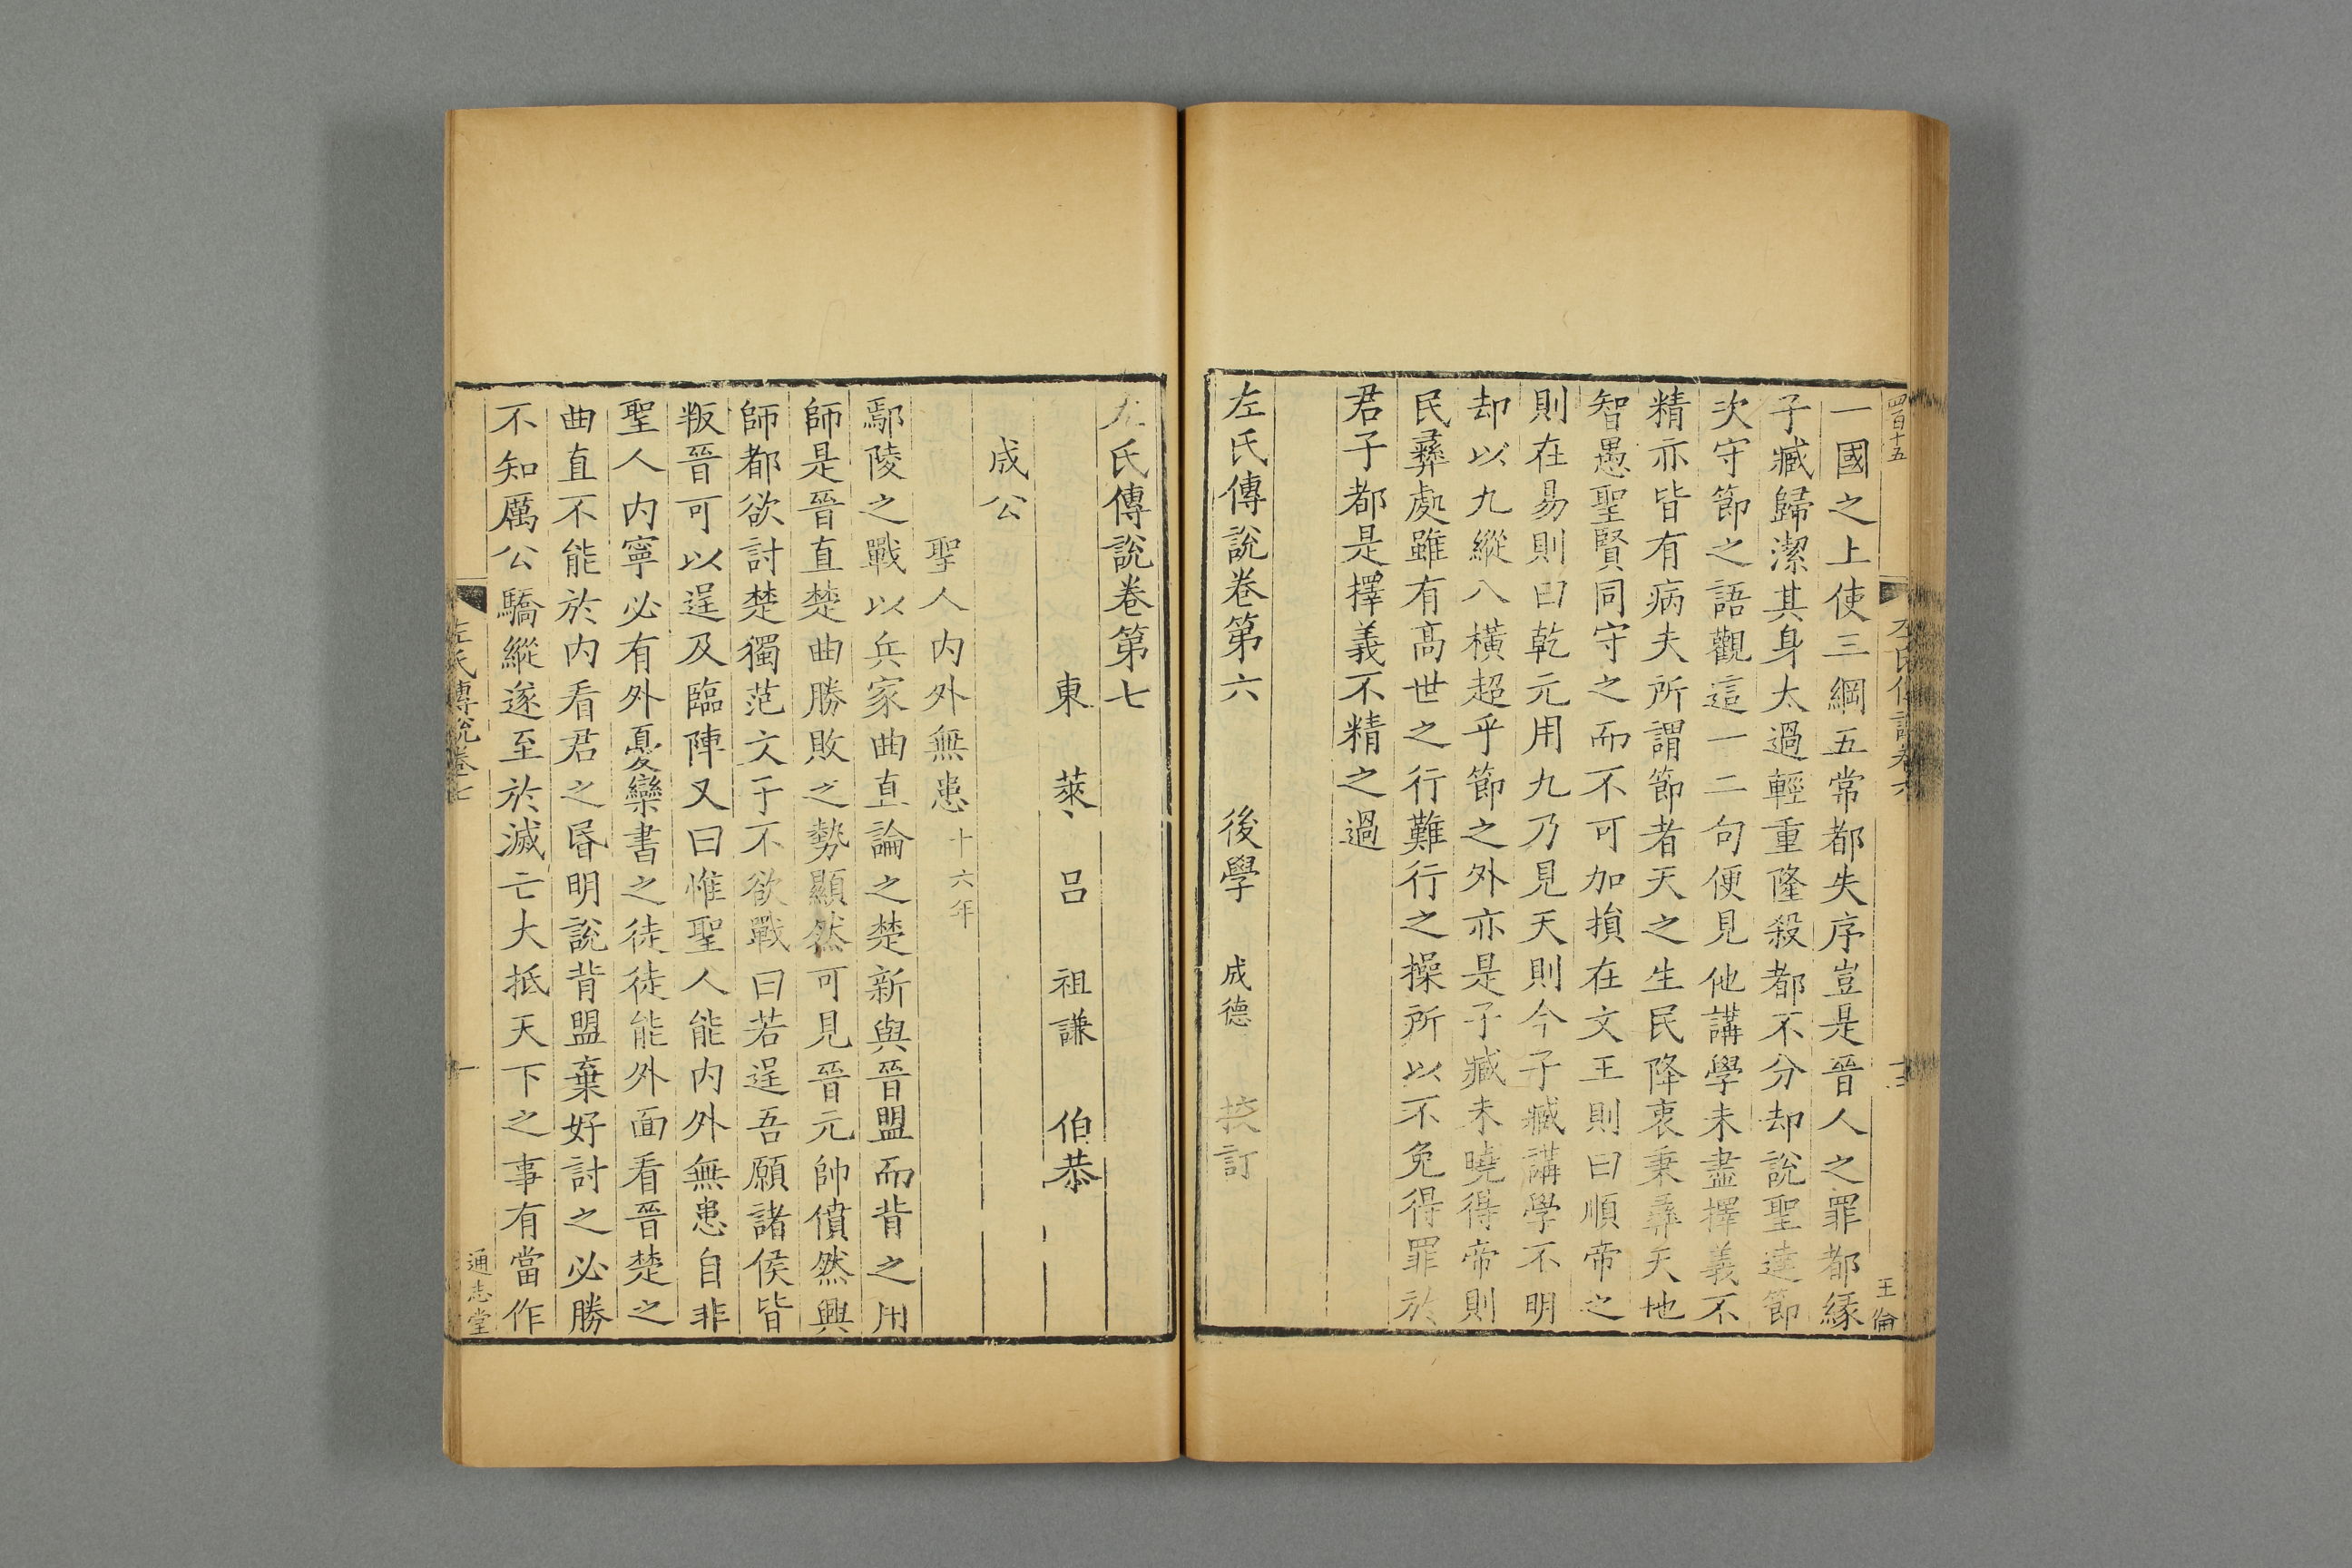 四百十五
王倫
一國之上使三綱五常都失序豈是晉人之罪都縁
子臧歸潔其身太過輕重隆殺都不分却說聖達節
次守節之語觀這一二句便見他講學未盡擇義不
精亦皆有病夫所謂節者天之生民降衷秉彞天地
智愚聖賢同守之而不可加損在文王則曰順帝之
則在易則曰乾元用九乃見天則今子臧講學不明
却以九縱八橫超乎節之外亦是子臧未曉得帝則
民彞處雖有高世之行難行之操所以不免得罪於
君子都是擇義不精之過
左氏傳說卷第六
後學 成德 挍訂
左氏傳說卷第七
東萊 呂 祖謙 伯恭
成公
聖人内外無患十六年
鄢陵之戰以兵家曲直論之楚新與晉盟而背之用
師是晉直楚曲勝敗之勢顯然可見晉元帥僨然興
師都欲討楚獨范文子不欲戰曰若逞吾願諸侯皆
叛晉可以逞及臨陣又曰惟聖人能内外無患自非
聖人内寧必有外憂欒書之徒徒能外面看晉楚之
曲直不能於内看君之昏明說背盟棄好討之必勝
不知厲公驕縱遂至於滅亡大抵天下之事有當作
左氏傳說卷七
一
通志堂